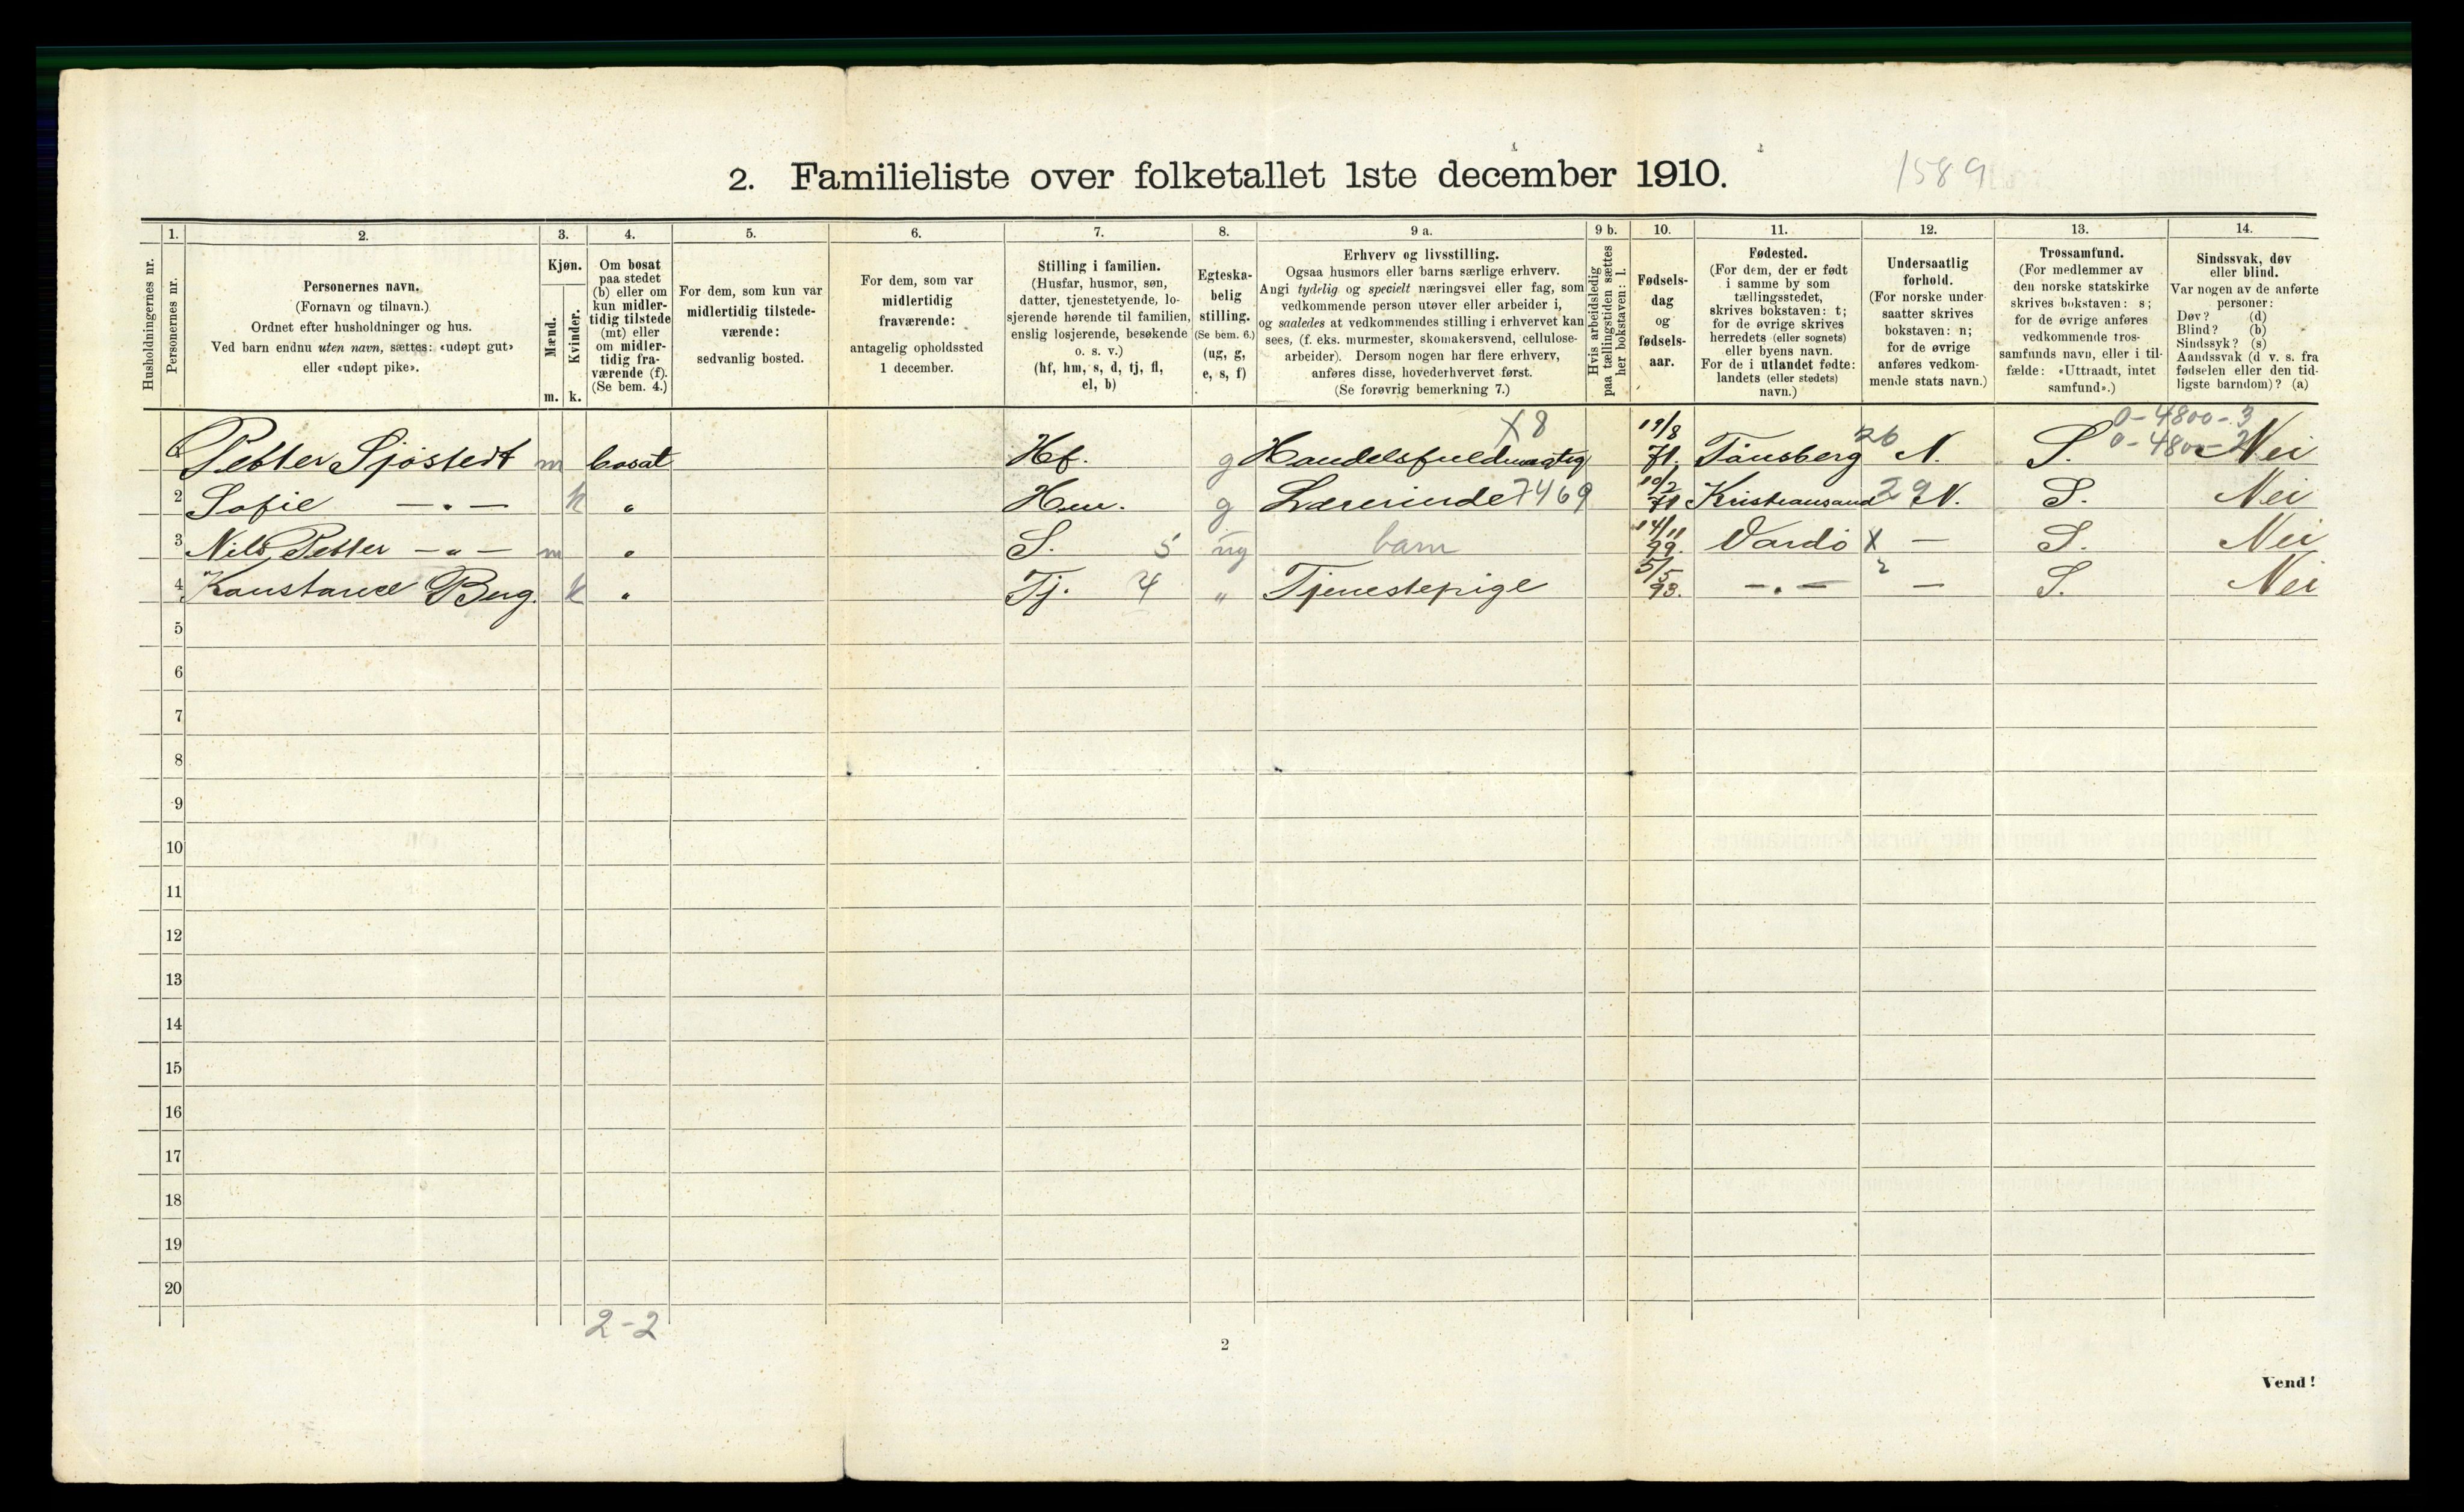 2. Familieliste over folketallet 1ste december 1910.
1589
Husholdningernes nr.
1.
Personernes nr.
2.
Personernes navn.
(Fornavn og tilnavn.)
Ordnet efter husholdninger og hus.
Ved barn endnu uten navn, sættes: «udøpt gut»
eller «udøpt pike».
3.
Kjøn.
Mænd.
Kvinder.
m.
k.
4.
Om bosat
paa stedet
(b) eller om
kun midler-
tidig tilstede
(mt) eller
om midler-
tidig fra-
værende (f).
(Se bem. 4.)
5.
For dem, som kun var
midlertidig tilstede-
værende:
sedvanlig bosted.
6.
For dem, som var
midlertidig
fraværende:
antagelig opholdssted
1 december.
7.
Stilling i familien.
(Husfar, husmor, søn,
datter, tjenestetyende, lo-
sjerende hørende til familien,
enslig losjerende, besøkende
o. s. v.)
(hf, hm, s, d, tj, fl,
el, b)
8.
Egteska-
belig
stilling.
(Se bem. 6.)
(ug, g,
e, s, f)
9 a.
Erhverv og livsstilling.
Ogsaa husmors eller barns særlige erhverv.
Angi tydelig og specielt næringsvei eller fag, som
vedkommende person utøver eller arbeider i,
og saaledes at vedkommendes stilling i erhvervet kan
sees, (f. eks. murmester, skomakersvend, cellulose-
arbeider). Dersom nogen har flere erhverv,
anføres disse, hovederhvervet først.
(Se forøvrig bemerkning 7.)
9 b.
Hvis arbeidsledig
paa tællingstiden sættes
her bokstaven: l.
10.
Fødsels-
dag
og
fødsels-
aar.
11.
Fødested.
(For dem, der er født
i samme by som
tællingsstedet,
skrives bokstaven: t;
for de øvrige skrives
herredets (eller sognets)
eller byens navn.
For de i utlandet fødte:
landets (eller stedets)
navn.)
12.
Undersaatlig
forhold.
(For norske under-
saatter skrives
bokstaven: n;
for de øvrige
anføres vedkom-
mende stats navn.)
13.
Trossamfund.
(For medlemmer av
den norske statskirke
skrives bokstaven: s;
for de øvrige anføres
vedkommende tros-
samfunds navn, eller i til-
fælde: «Uttraadt, intet
samfund».)
14.
Sindssvak, døv
eller blind.
Var nogen av de anførte
personer:
Døv? (d)
Blind? (b)
Sindssyk? (s)
Aandssvak (d v. s. fra
fødselen eller den tid-
ligste barndom)? (a)
X8 0-4800-3
Petter Sjøstedt m bosat Hf. g Handelsfuldmægtig 19/8 71. Tønsberg 26 N. S. 0-4800-2 Nei
2 Sofie —"— k " Hm. g Lærerinde 7469 10/2 71 Kristiansand 29 N. S. Nei
3 Nils Petter —"— m " S. 5 ug barn 14/11 99. Vardø X — S. Nei
4 Konstance Berg. k " Tj. 4 " Tjenestepige 5/5 93. —"— 2 — S. Nei
5
6
7
8
9
10
11
12
13
14
15
16
17
18
19
20
2-2
2
Vend!